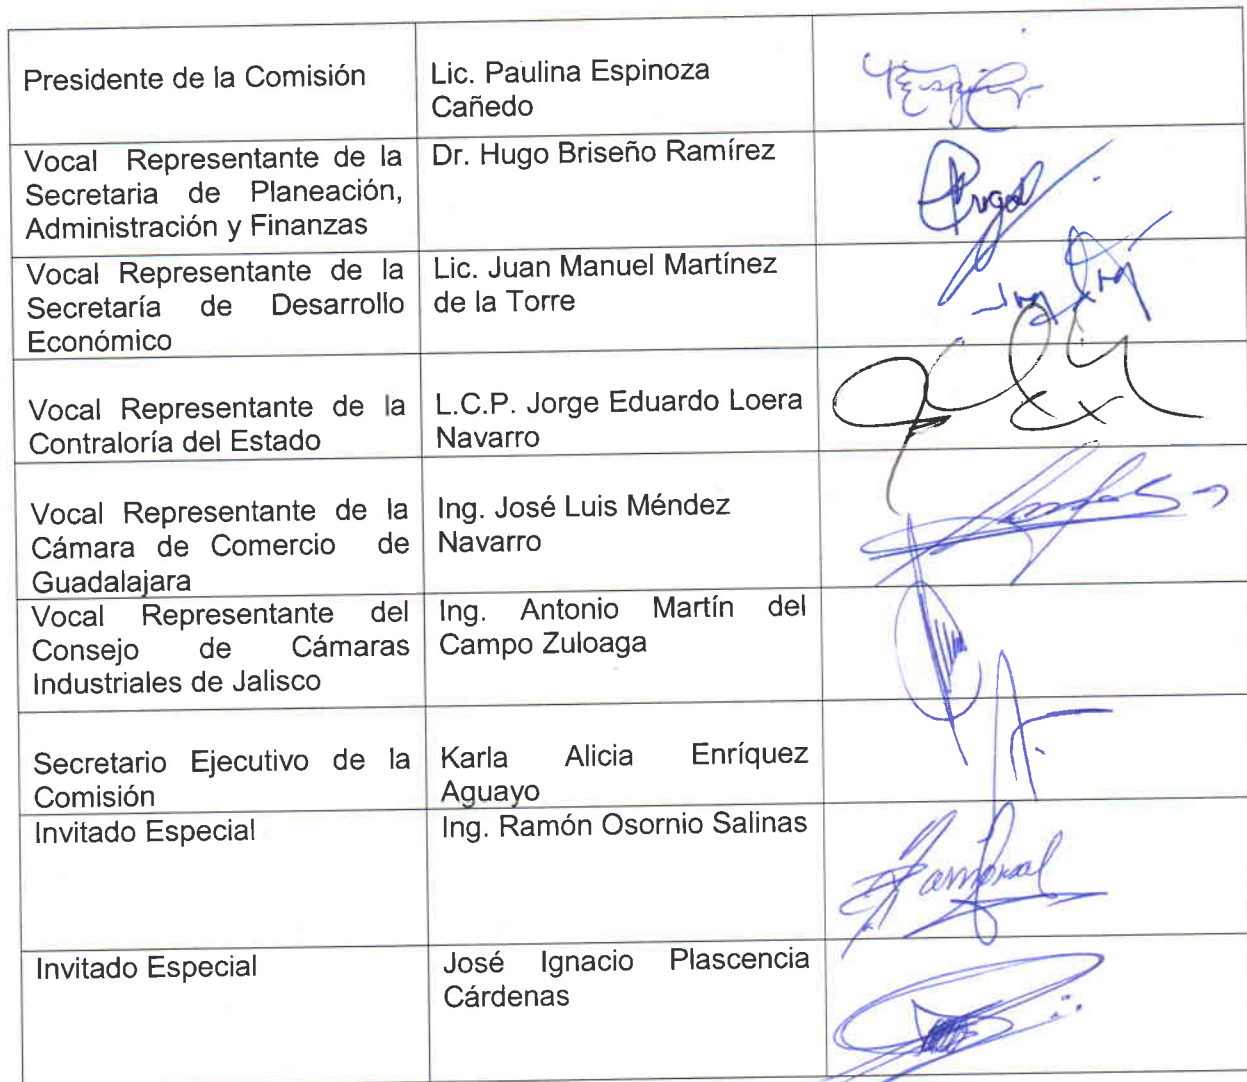 Presidente de la Comisión
Lic. Paulina Espinoza
Cañedo
Vocal Representante de la
Secretaria de Planeación,
Administración y Finanzas
Dr. Hugo Briseño Ramírez
Vocal Representante de la
Secretaría de Desarrollo
Económico
Lic. Juan Manuel Martínez
de la Torre
Vocal Representante de la
Contraloría del Estado
L.C.P. Jorge Eduardo Loera
Navarro
Vocal Representante de la
Cámara de Comercio de
Guadalajara
Ing. José Luis Méndez
Navarro
Vocal Representante del
Consejo de Cámaras
Industriales de Jalisco
Ing. Antonio Martín del
Campo Zuloaga
Secretario Ejecutivo de la
Comisión
Karla Alicia Enríquez
Aguayo
Invitado Especial
Ing. Ramón Osornio Salinas
Invitado Especial
José Ignacio Plascencia
Cárdenas